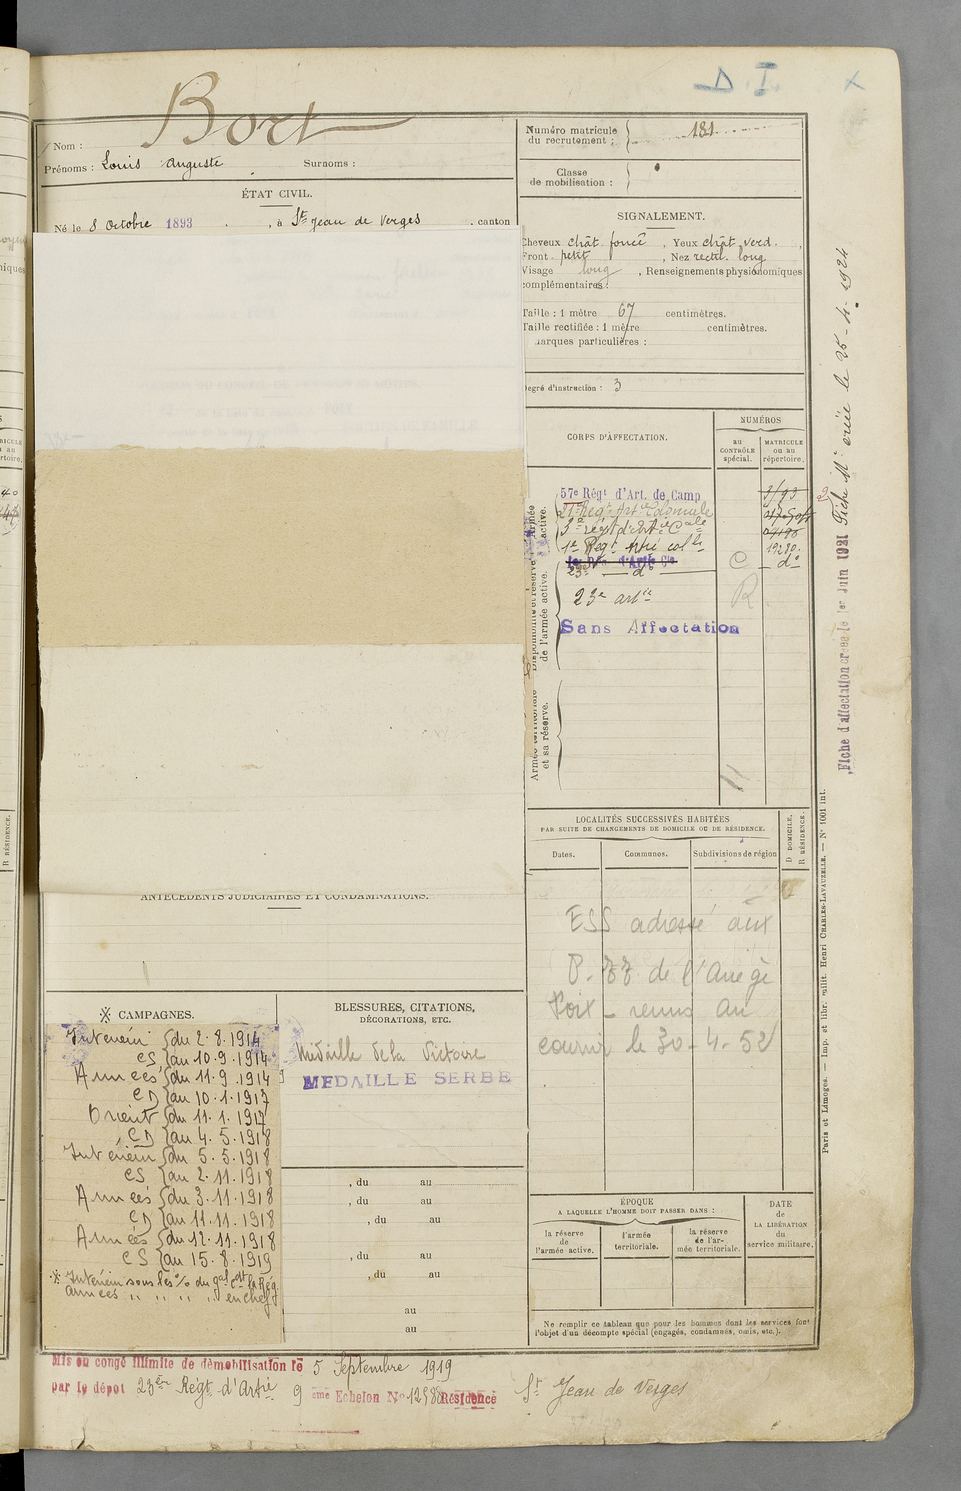 D. I.
X
Bort
Nom :
Prénoms : Louis Auguste Surnoms :
ÉTAT CIVIL.
Né le 8 Octobre 1893 , à St Jean de Verges , canton
Numéro matricule
du recrutement : 181
Classe
de mobilisation :
SIGNALEMENT.
Cheveux chât. foncé , Yeux chât. verd. ,
Front petit , Nez rectil. long
Visage long , Renseignements physionomiques
complémentaires :
Taille : 1 mètre 67 centimètres.
Taille rectifiée : 1 mètre centimètres.
Marques particulières :
Degré d'instruction : 3
CORPS D'AFFECTATION.
NUMÉROS
AU
CONTRÔLE
spécial.
MATRICULE
ou au
répertoire.
Armée
active.
57e Régt d'Art. de Camp
21e Regt Artie Coloniale
3e régt d'Artie Cale
1er Regt Artie colle
19280.
23e do C do
23e artie R
Sans Affectation
Disponibilité et réserve
de l'armée active.
Armée territoriale
et sa réserve.
Fiche d'affectation créée le 1er Juin 1921 Fiche Mle créée le 25-4-1924
LOCALITÉS SUCCESSIVES HABITÉES
PAR SUITE DE CHANGEMENTS DE DOMICILE OU DE RÉSIDENCE.
Dates.
Communes.
Subdivisions de région
D DOMICILE.
R RÉSIDENCE.
ESS adressé aux
P. de l'Ariège
Foix - remis au
courrier le 30-4-52
ANTÉCÉDENTS JUDICIAIRES ET CONDAMNATIONS.
※ CAMPAGNES.
Intérieur { du 2.8.1914
CS { au 10.9.1914
Armées { du 11.9.1914
CD { au 10.1.1917
Orient { du 11.1.1917
CD { au 4.5.1918
Intérieur { du 5.5.1918
CS { au 2.11.1918
Armées { du 3.11.1918
CD { au 11.11.1918
Armées { du 12.11.1918
CS { au 15.8.1919
※ Intérieur sous les % du gal Cdt la Rég.
armées " " " " en chef
BLESSURES, CITATIONS,
DÉCORATIONS, ETC.
Médaille de la Victoire
MEDAILLE SERBE
, du au
, du au
, du au
, du au
, du au
au
au
ÉPOQUE
A LAQUELLE L'HOMME DOIT PASSER DANS :
la réserve
de
l'armée active.
l'armée
territoriale.
la réserve
de l'ar-
mée territoriale.
DATE
de
LA LIBÉRATION
du
service militaire.
Ne remplir ce tableau que pour les hommes dont les services font
l'objet d'un décompte spécial (engagés, condamnés, omis, etc.).
Paris et Limoges. — Imp. et libr. milit. Henri CHARLES-LAVAUZELLE. — N° 1001 int.
Mis en congé illimité de démobilisation le 5 Septembre 1919
par le dépôt 23ème Régt d'Artie 9 ème Echelon No 12988 Résidence St Jean de Verges
R RÉSIDENCE.